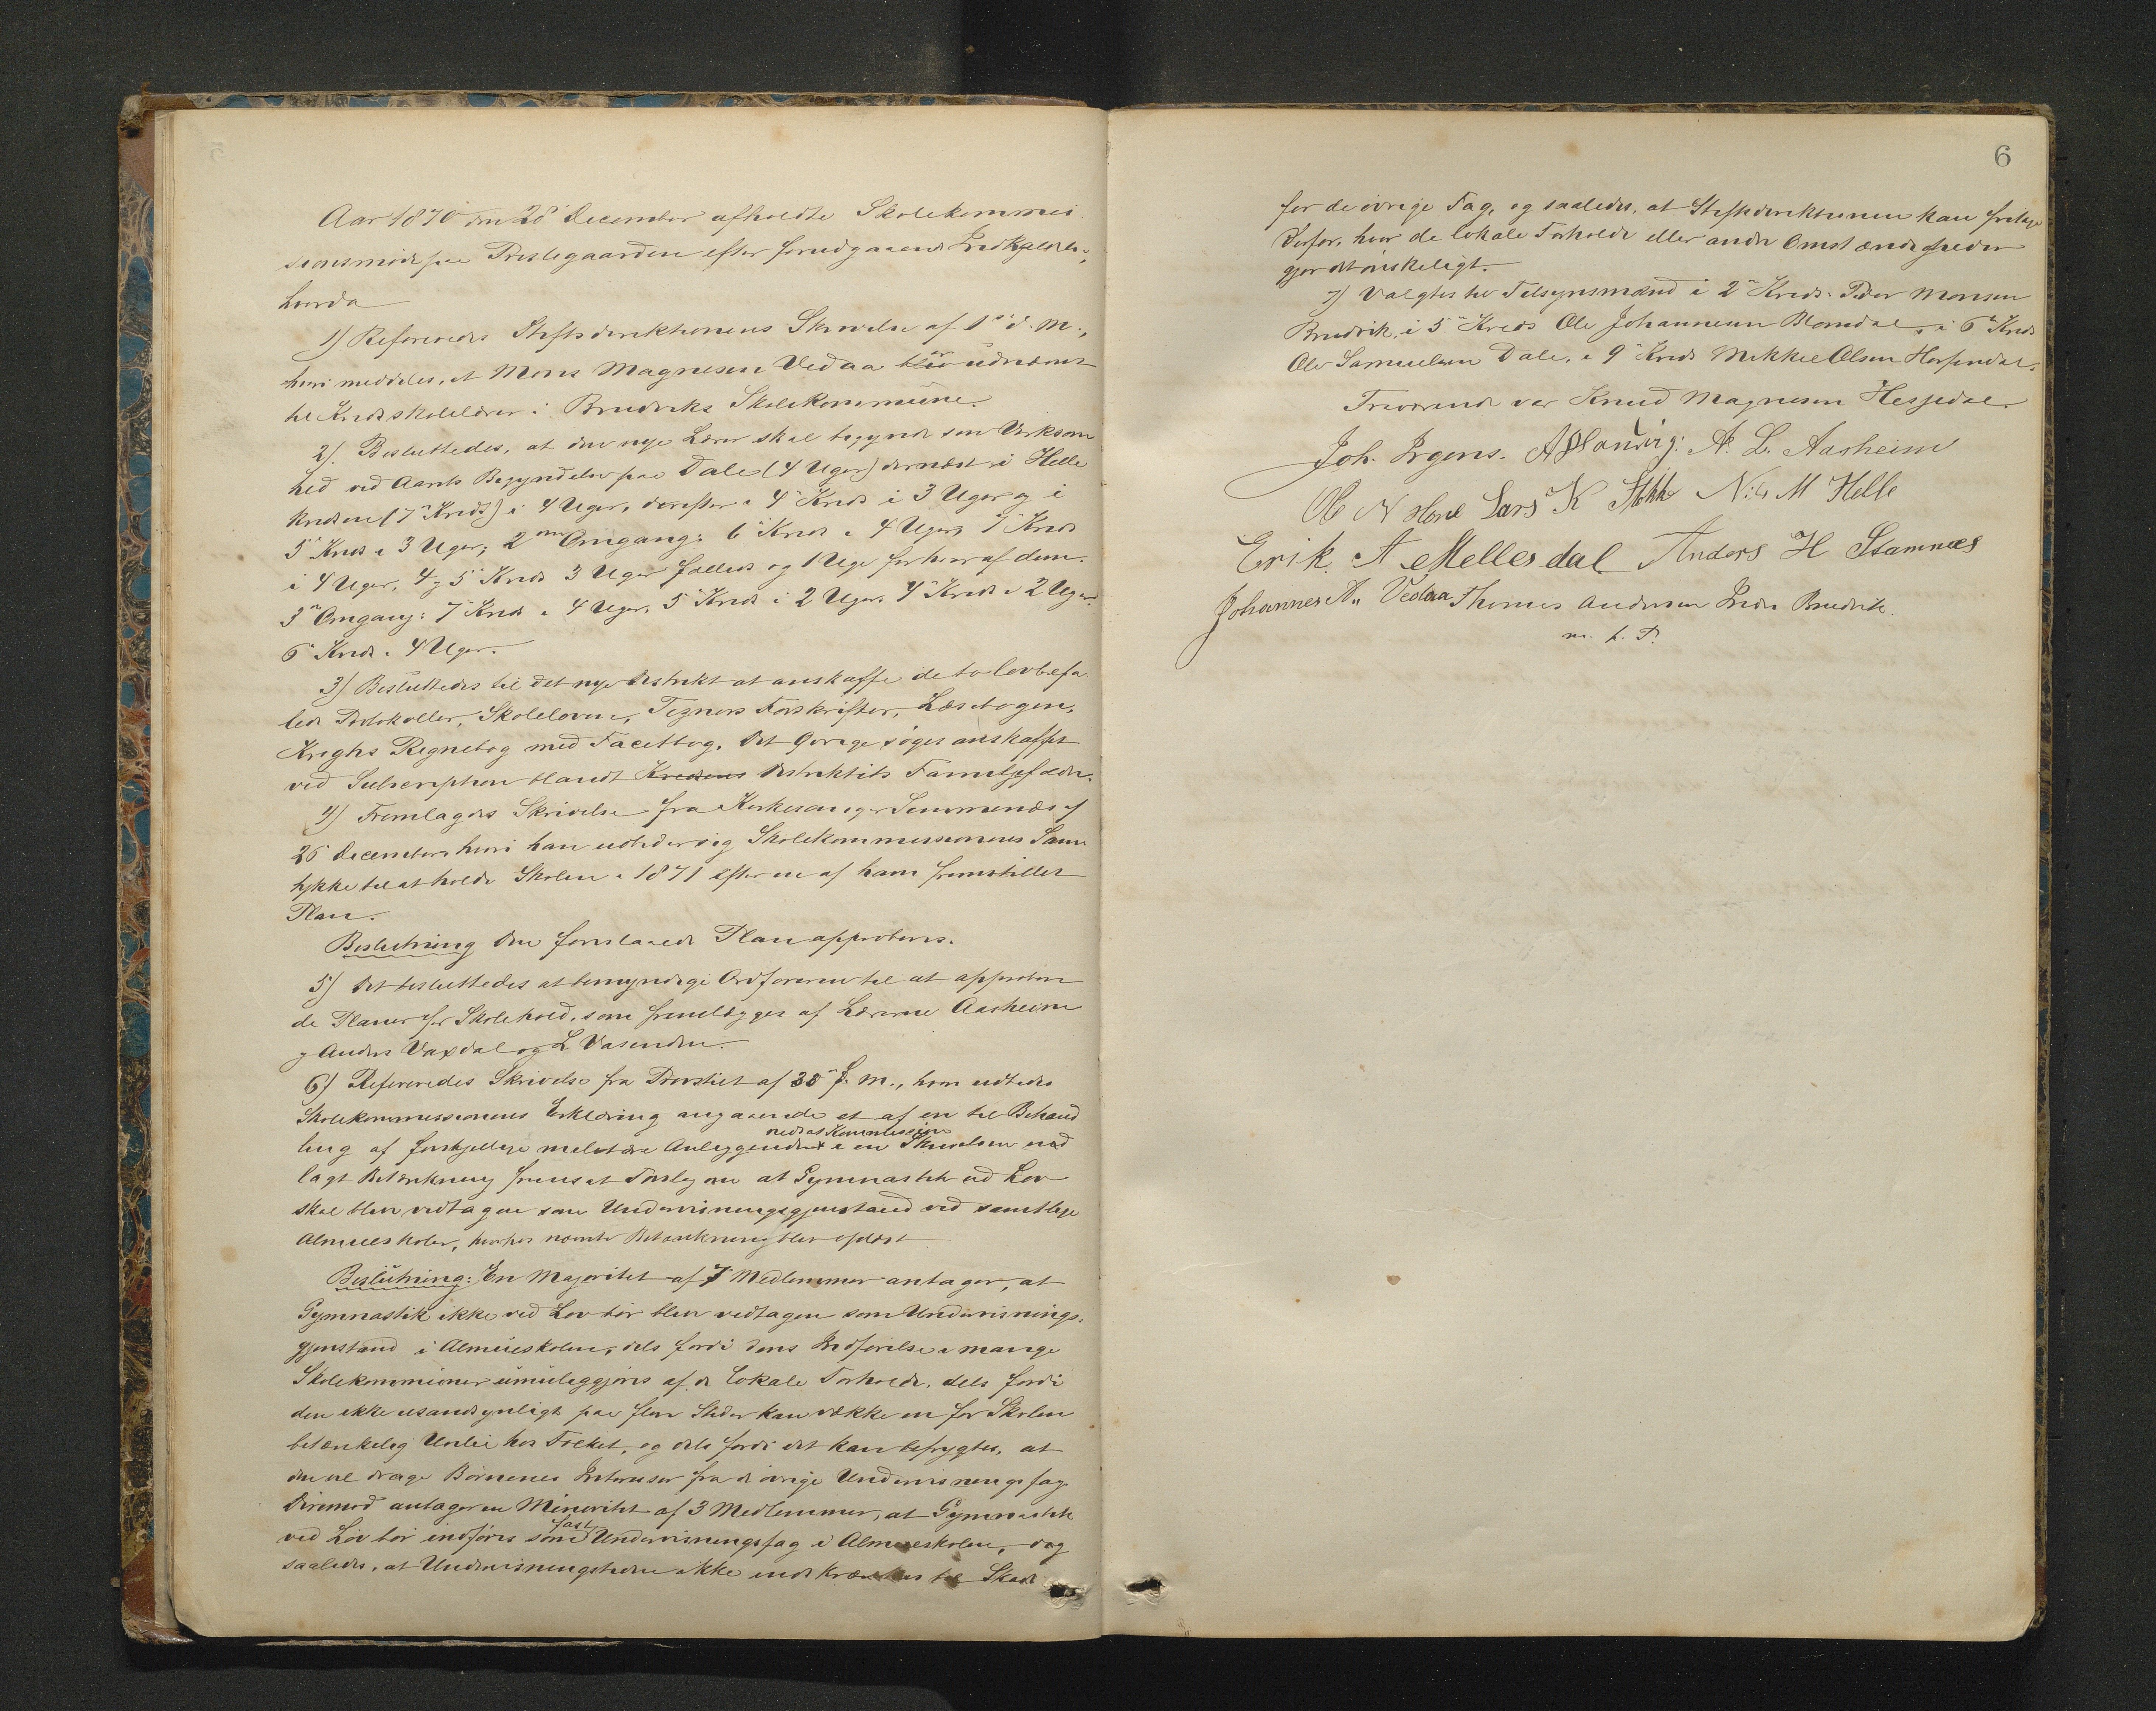 Aar 1870 den 28de December afholdte Skolekommis
sionsmøde paa Prestegaarden efter forudgaaende Indkaldelse,
hvorda
1) Refereredes Stiftsdirektionens Skrivelse af 1ste d. M.,
hvori meddeles, at Mons Magnesen Vedaa blev er udnævnt
til Kredsskolelærer i Bruviks Skolekommune.
2) Besluttedes, at den nye Lærer skal begynde sin Virksom
hed ved Aarets Begyndelse paa Dale (4 Uger) dernæst i Helle
kredsen (7de Kreds) i 4 Uger, derefter i 4de Kreds i 3 Uger og i
5te Kreds i 3 Uger; 2den Omgang: 6te Kreds i 4 Uger, 7de Kreds
i 4 Uger, 4 og 5te Kreds 3 Uger fælleds og 1 Uge for hver af dem.
3die Omgang: 7de Kreds i 4 Uger, 5te Kreds i 2 Uger, 4de Kreds i 2 Uger.
6te Kreds i 4 Uger.
3) Besluttedes til det nye Distrikt at anskaffe de to lovbefa
lede Protokoller, Skoleloven, Tegners Forskrifter, Læsebogen,
Kroghs Regnebog med Facitbog. Det Øvrige søges anskaffet
ved Subscription blandt Kredsens Distriktets Familjefædre.
4) Fremlagdes Skrivelse fra Kirkesanger Simmenæs af
26 December hvori han udbeder sig Skolekommissionens Sam
tykke til at holde Skolen i 1871 efter en af ham fremstillet
Plan.
Beslutning Den foreslaaede Plan approberes.
5) Det besluttedes at bemyndige Ordføreren til at approbere
de Planer for Skolehold, som fremlægges af Lærerne Aasheim
og Anders Vaxdal og L Vasenden.
6) Refereredes Skrivelse fra Provstiet af 30te f. M., hvori udbedes
Skolekommissionens Erklæring angaaende et af en til Behand
ling af forskjellige militære Anliggender nedsat Kommission i en Skrivelsen ved
lagt Betænkning fremsat Forslag om at Gymnastik ved Lov
skal blive vedtagen som Undervisningsgjenstand ved samtlige
Almueskoler, hvorhos nævnte Betænkning blev oplæst
Beslutning: En Majoritet af 7 Medlemmer antager, at
Gymnastik ikke ved Lov bør blive vedtagen som Undervisnings-
gjenstand i Almueskolen, dels fordi dens Indførelse i mange
Skolekommuner umuliggjøres af de lokale Forholde, dels fordi
den ikke usandsynligt paa flere Steder kan vække en for Skolen
betænkelig Uvilie hos Folket, og dels fordi det kan befrygtes, at
den vil drage Børnenes Interesser fra de øvrige Undervisningsfag.
Derimod antager en Minoritet af 3 Medlemmer, at Gymnastik
ved Lov bør indføres som fast Undervisningsfag i Almueskolen, dog
saaledes, at Undervisningstiden ikke indskrænkes til Skade
6
for de øvrige Fag, og saaledes, at Stiftsdirektionen kan fritage
derfor, hvor de lokale Forholde eller andre Omstændigheder
gjør det ønskeligt.
7) Valgtes til Tilsynsmænd i 2den Kreds Peder Monsen
Bruvik, i 5te Kreds Ole Johannesen Blomdal, i 6te Kreds
Ole Samuelsen Dale, i 9de Kreds Mikkel Olsen Hesjedal.
Fraværende var Knud Magnesen Hesjedal.
Joh. Irgens. A. L. Aasheim
Ole N Lars K Nils M Helle
Erik A Mellesdal Anders H Stamnes
Johannes A. Vedaa Thomas Andersen Indre Bruvik
m. f. P.